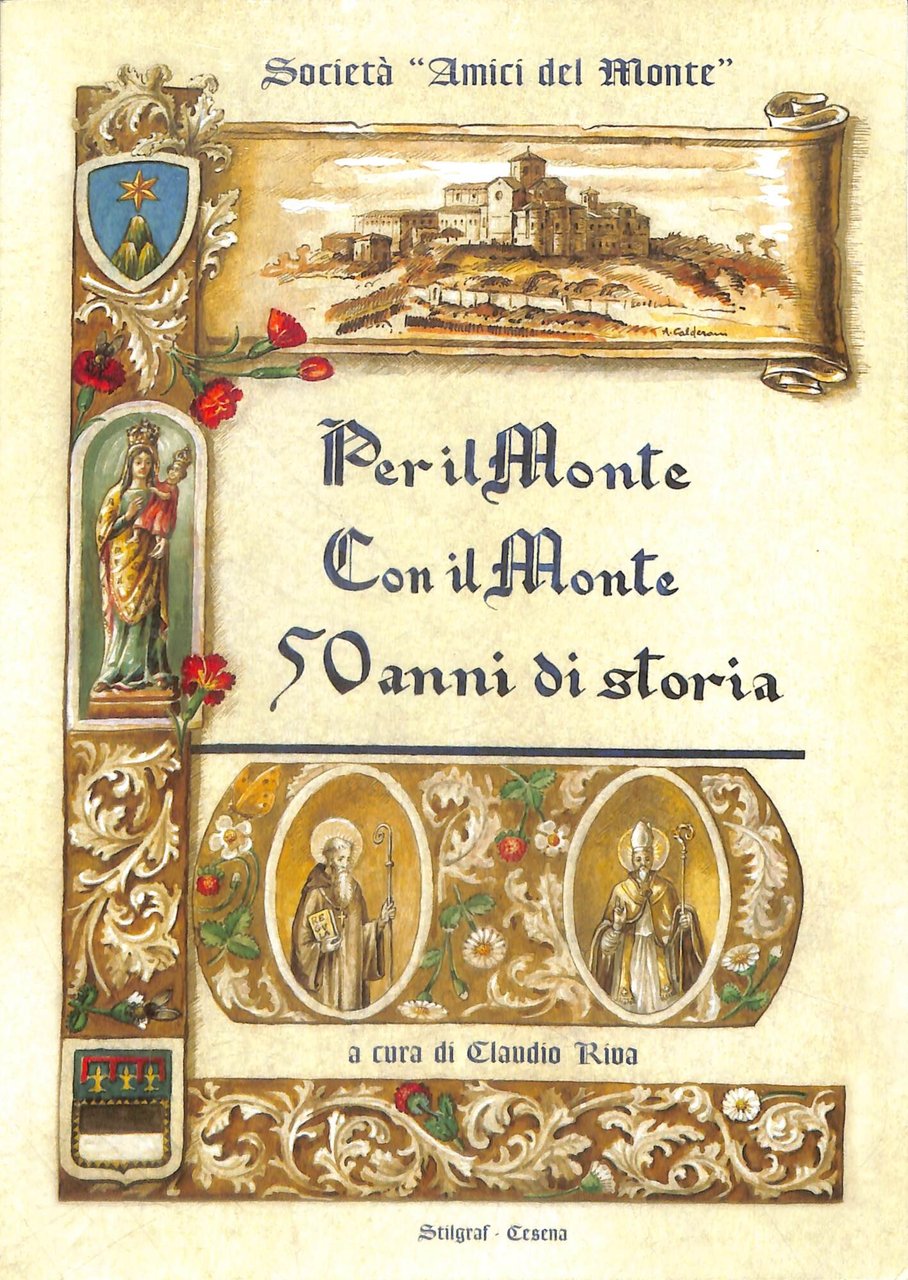 Società “Amici del Monte”
A. Calderoni
Per il Monte
Con il Monte
50 anni di storia
a cura di Claudio Riva
Stilgraf - Cesena